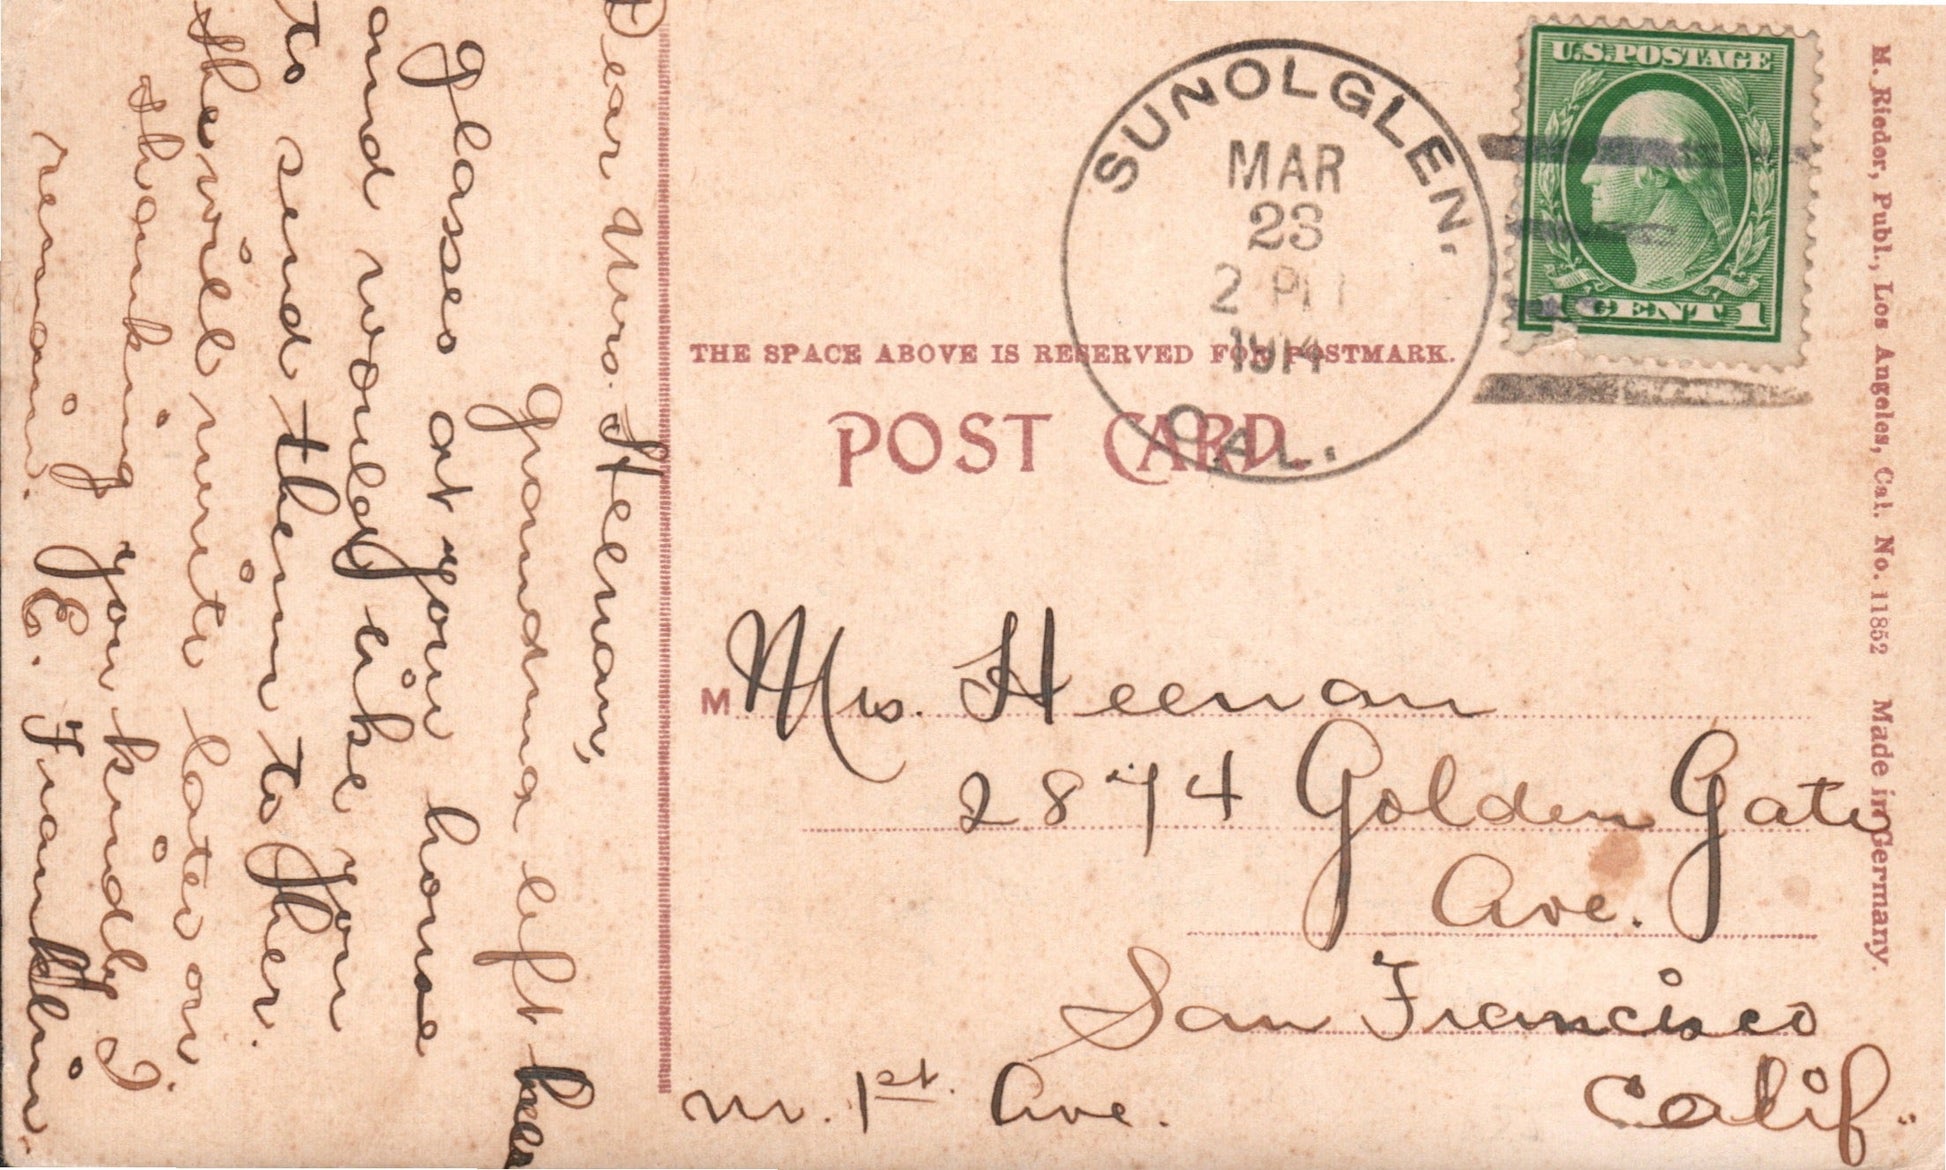 Dear Mrs. Heenan,
Grandma left her
glasses at your house
and would like you
to send them to her.
She will write later on
thanking you kindly I
remain. E. Franklin.
SUNOLGLEN,
MAR
23
2 PM
1914
CAL.
U.S. POSTAGE
1 CENT 1
THE SPACE ABOVE IS RESERVED FOR POSTMARK.
POST CARD
M Mrs. Heenan
2874 Golden Gate
Ave.
San Francisco
Calif.
nr. 1st. Ave.
M. Rieder, Publ., Los Angeles, Cal. No. 11852 Made in Germany.